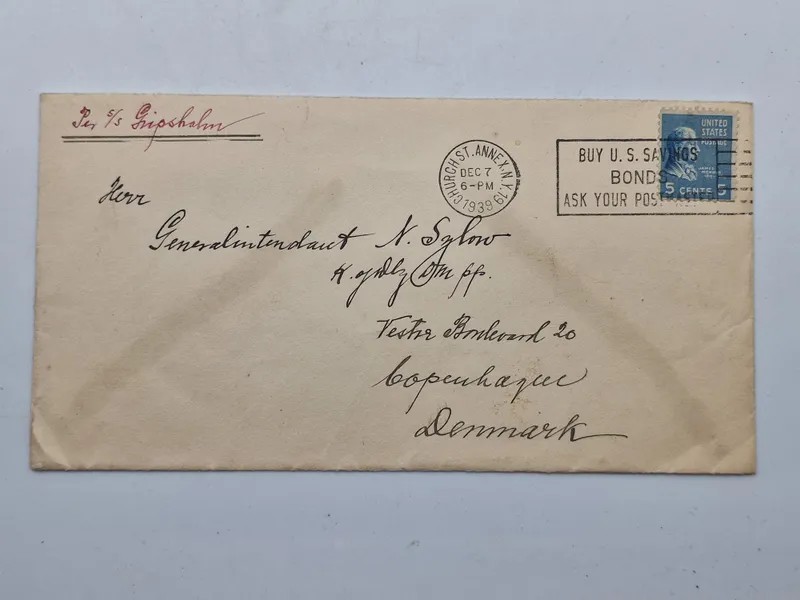 Per S/S Gripsholm
CHURCH ST. ANNEX. N.Y. 19
DEC 7
6-PM
1939
BUY U.S. SAVINGS
BONDS
ASK YOUR POSTMASTER
UNITED
STATES
POSTAGE
5 CENTS 5
Herr
Generalintendant N. Sylow
K. af Dbg DM pp.
Vestre Boulevard 20
Copenhagen
Denmark